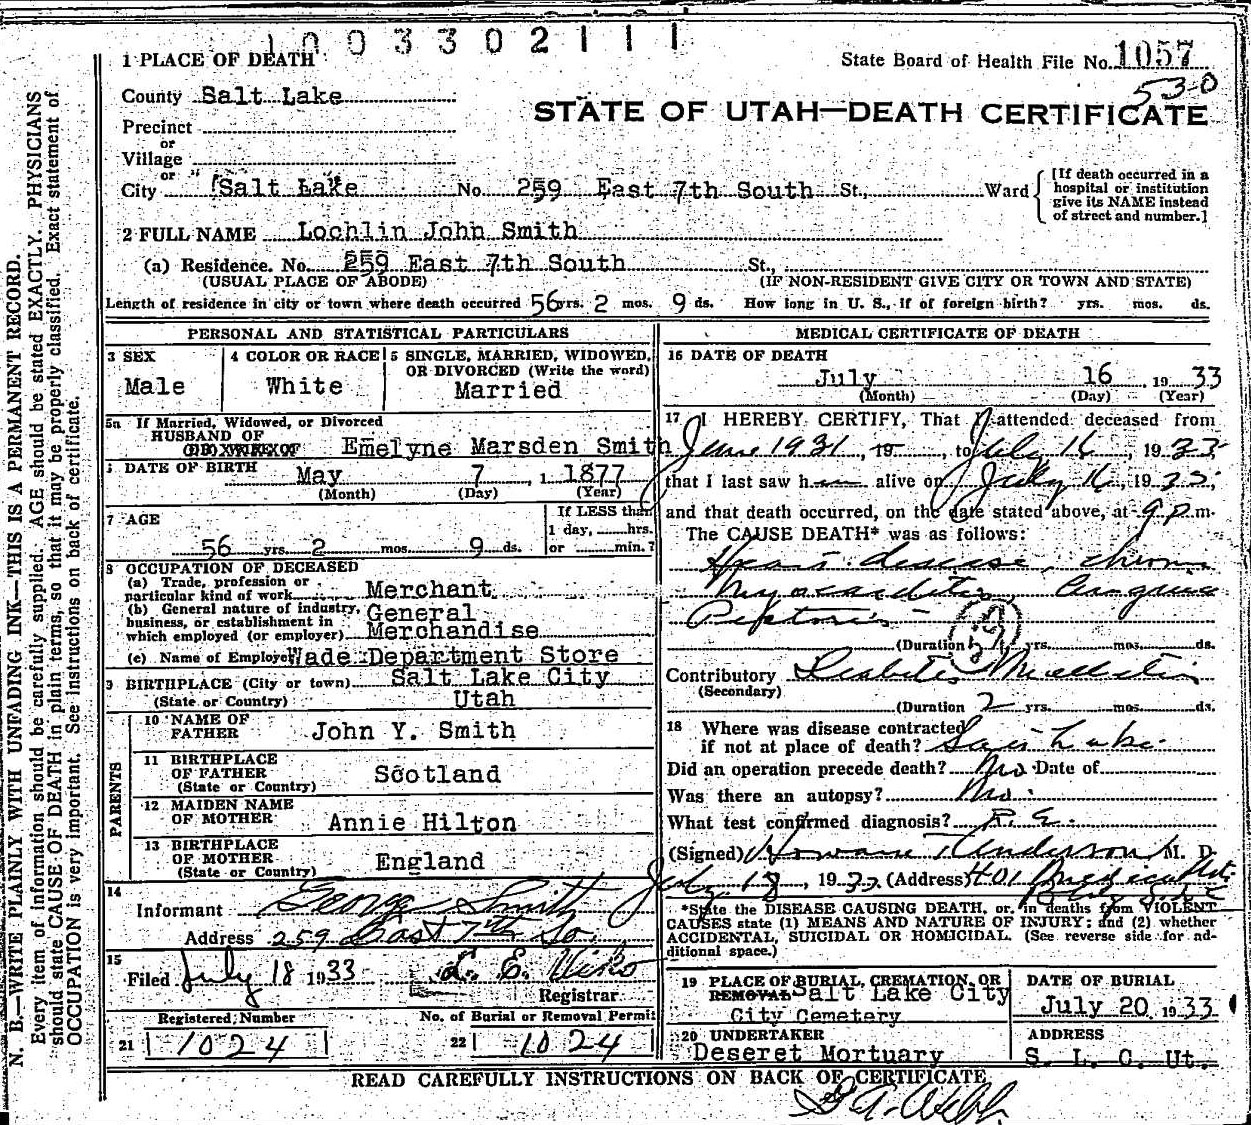 1003302111
1 PLACE OF DEATH
State Board of Health File No. 1057
530
County Salt Lake
STATE OF UTAH—DEATH CERTIFICATE
Precinct
or
Village
or
City Salt Lake No. 259 East 7th South St., Ward
[If death occurred in a
hospital or institution
give its NAME instead
of street and number.]
2 FULL NAME Lochlin John Smith
(a) Residence. No. 259 East 7th South St.,
(USUAL PLACE OF ABODE) (IF NON-RESIDENT GIVE CITY OR TOWN AND STATE)
Length of residence in city or town where death occurred 56 yrs. 2 mos. 9 ds. How long in U. S., if of foreign birth? yrs. mos. ds.
PERSONAL AND STATISTICAL PARTICULARS
3 SEX
Male
4 COLOR OR RACE
White
5 SINGLE, MARRIED, WIDOWED,
OR DIVORCED (Write the word)
Married
5a If Married, Widowed, or Divorced
HUSBAND OF
Emelyne Marsden Smith
DATE OF BIRTH May 7, 1877
(Month) (Day) (Year)
7 AGE
56 yrs. 2 mos. 9 ds.
If LESS than
1 day, hrs.
or min.?
8 OCCUPATION OF DECEASED
(a) Trade, profession or
particular kind of work Merchant
(b) General nature of industry,
business, or establishment in
which employed (or employer) General
Merchandise
(c) Name of Employer Wade Department Store
9 BIRTHPLACE (City or town) Salt Lake City
(State or Country) Utah
PARENTS
10 NAME OF
FATHER John Y. Smith
11 BIRTHPLACE
OF FATHER
(State or Country) Scotland
12 MAIDEN NAME
OF MOTHER Annie Hilton
13 BIRTHPLACE
OF MOTHER
(State or Country) England
14
Informant George Smith
Address 259 East 7th So.
15
Filed July 18 1933 L. E. Viko
Registrar
Registered Number
21 1024
No. of Burial or Removal Permit
22 1024
MEDICAL CERTIFICATE OF DEATH
16 DATE OF DEATH
July 16, 1933
(Month) (Day) (Year)
17 I HEREBY CERTIFY, That I attended deceased from
June 1931, 19 , to July 16, 1933
that I last saw h alive on July 16, 1933,
and that death occurred, on the date stated above, at 9 p.m.
The CAUSE DEATH* was as follows:
Heart disease, chronic
Myocarditis, Angina
Pectoris
(Duration yrs. mos. ds.
Contributory Diabetes Mellitus
(Secondary)
(Duration 2 yrs. mos. ds.
18 Where was disease contracted
if not at place of death? Salt Lake
Did an operation precede death? No Date of
Was there an autopsy? No.
What test confirmed diagnosis?
(Signed) Howard Anderson M. D.
July 18, 1933 (Address) 401 Medical Arts
*State the DISEASE CAUSING DEATH, or, in deaths from VIOLENT
CAUSES state (1) MEANS AND NATURE OF INJURY; and (2) whether
ACCIDENTAL, SUICIDAL OR HOMICIDAL. (See reverse side for ad-
ditional space.)
19 PLACE OF BURIAL, CREMATION, OR
REMOVAL Salt Lake City
City Cemetery
DATE OF BURIAL
July 20, 1933
20 UNDERTAKER
Deseret Mortuary
ADDRESS
S. L. C. Ut.
READ CAREFULLY INSTRUCTIONS ON BACK OF CERTIFICATE
N. B.—WRITE PLAINLY WITH UNFADING INK—THIS IS A PERMANENT RECORD.
Every item of information should be carefully supplied. AGE should be stated EXACTLY. PHYSICIANS
should state CAUSE OF DEATH in plain terms, so that it may be properly classified. Exact statement of
OCCUPATION is very important. See instructions on back of certificate.